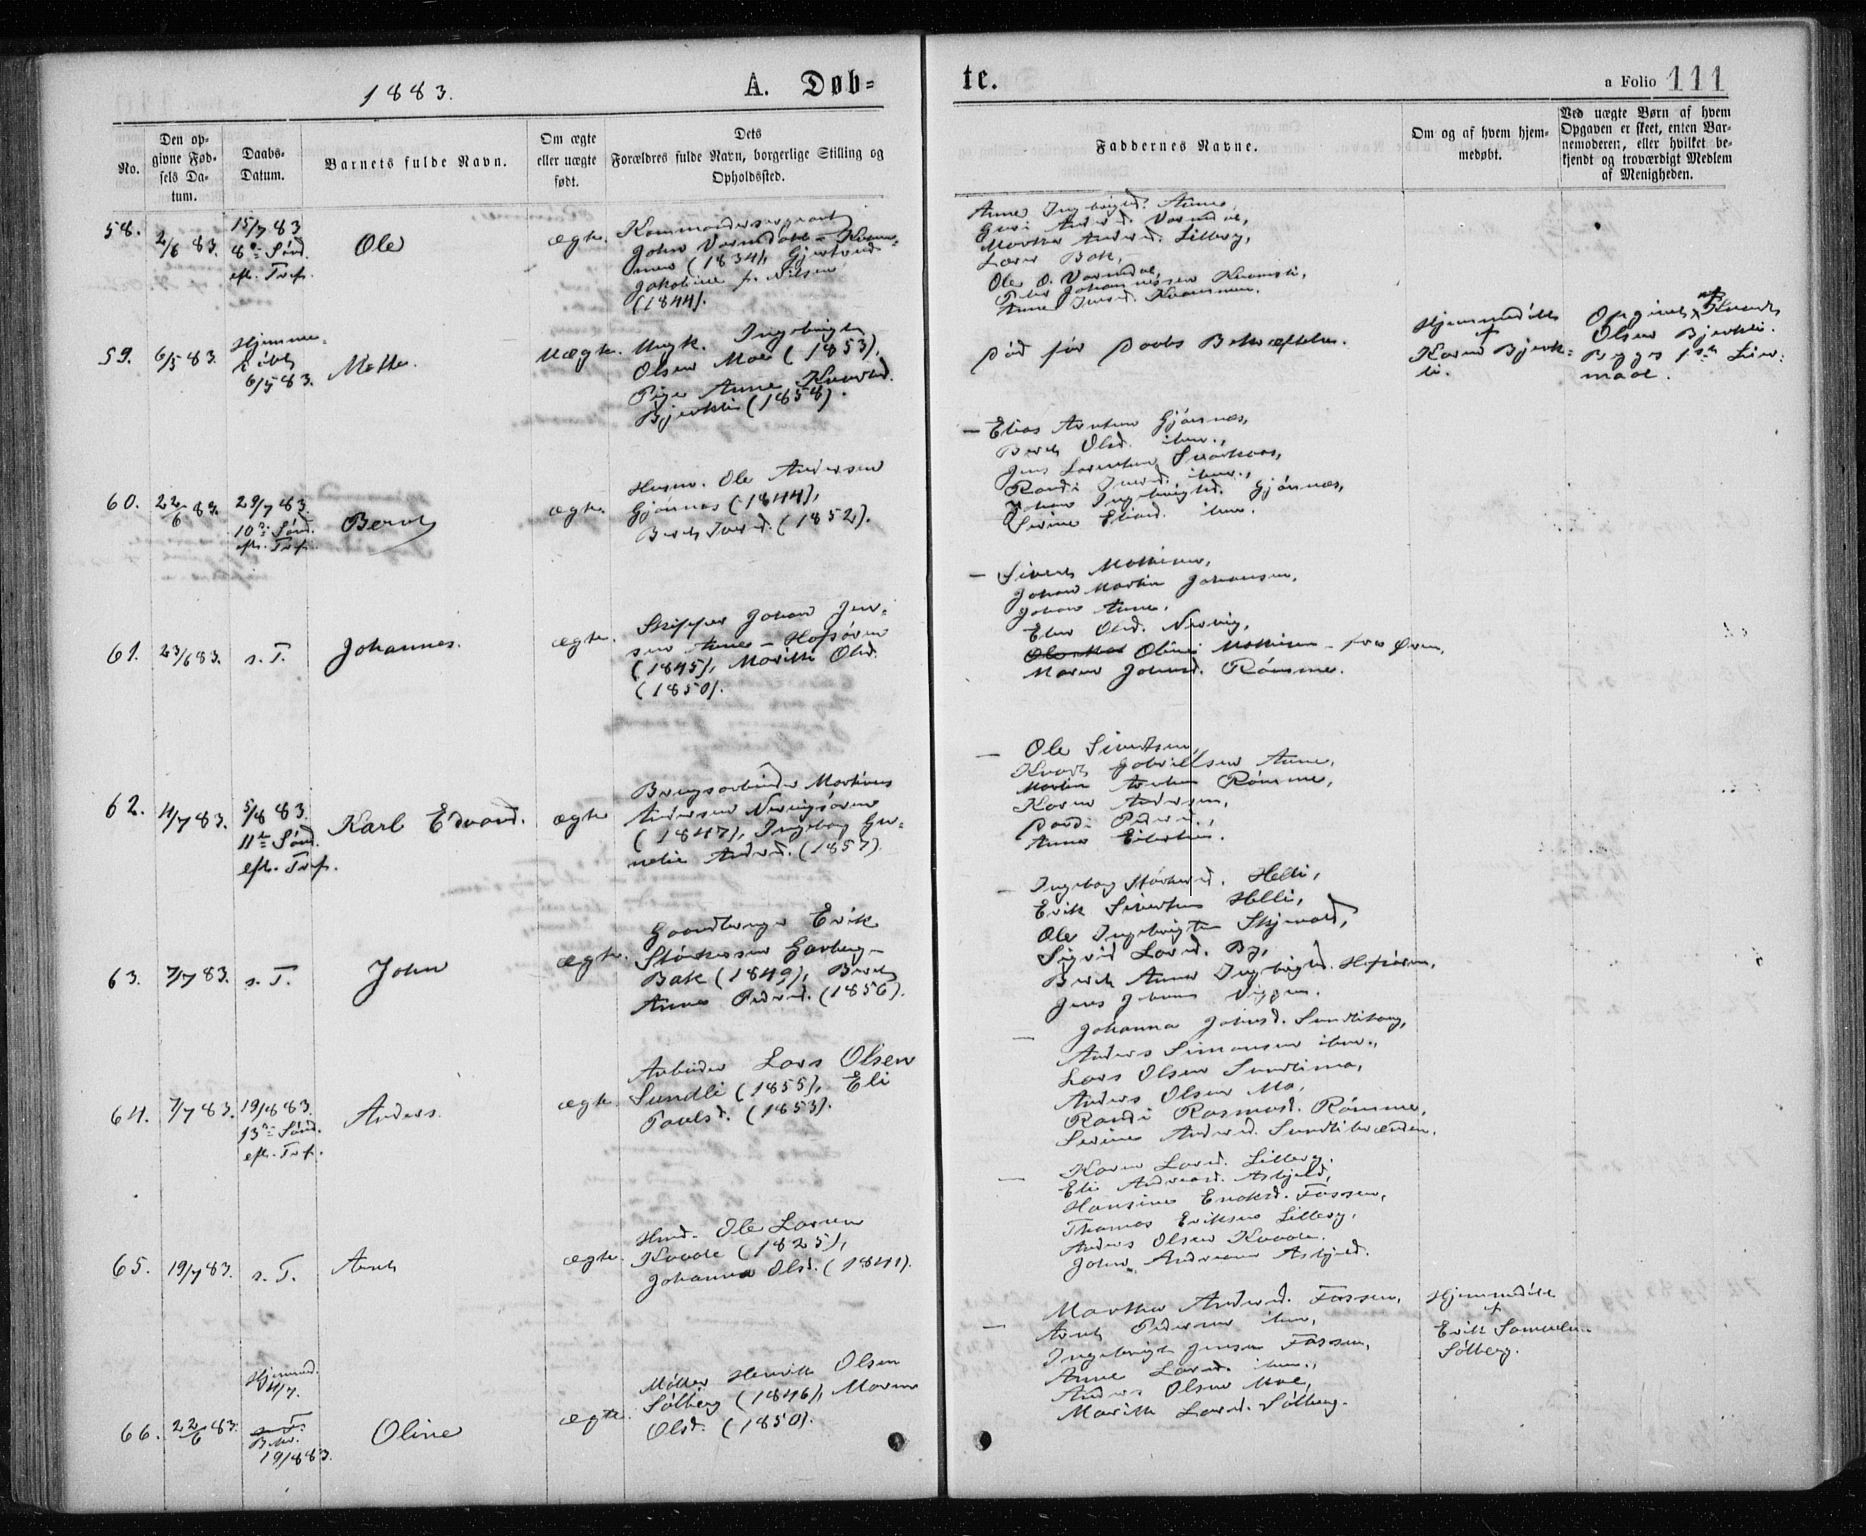 1883.
A. Døb-
te.
a Folio 111
No.
Den op-
givne Fød-
sels Da-
tum.
Daabs-
Datum.
Barnets fulde Navn.
Om ægte
eller uægte
født.
Dets
Forældres fulde Navn, borgerlige Stilling og
Opholdssted.
Faddernes Navne.
Om og af hvem hjem-
medøbt.
Ved uægte Børn af hvem
Opgaven er skeet, enten Bar-
nemoderen, eller hvilket be-
kjendt og troværdigt Medlem
af Menigheden.
58.
2/6 83.
15/7 83
8de Sønd.
eft. Tref.
Ole
ægte.
Kommandersergeant
John Vormdahl - Kvam-
(1834), Gjertrud
Jakobine f. Nilsen
(1844).
Anne Ingebrigtsd. Aune,
Guri Andersd. Vormdal,
Martha Andersd. Lilleby,
Bak,
Ole O. Vormdal,
Peter Johannessen
Anne
59.
6/5 83.
Hjemme-
døbt
6/5 83.
Mette.
Uægte.
Ungk. Ingebrigt
Olsen Moe (1853),
Pige Anne Knudsd.
Bjerkli (1858).
Død før Daabs Bekræftelse.
Hjemmedøbt
af
Karen Bjerk-
li.
Opgivet af Knud
Olsen Bjerkli.
Begges 1ste Leier-
maal.
60.
22/6 83.
29/7 83.
10de Sønd.
eft. Tref.
Beret
ægte.
Husm. Ole Andersen
Gjønnes (1844),
Beret Iversd. (1852).
— Elias Arntsen Gjønnes,
Beret Olsd. ibm.,
Jens Lorentsen
Randi
Johan Ingebrigtsd. Gjønnes,
Serine ibm.
61.
23/6 83.
s. T.
Johannes.
ægte.
Skipper Johan Jen-
sen Aune - Hofsøren
(1845), Marith Olsd.
(1850).
— Sivert Mathisen,
Johan Martin Johansen,
Johan Aune,
Elen Olsd. Nervig,
Oline Mathisen - fra Øren,
Maren Johnsd. Rømme.
62.
11/7 83.
5/8 83.
11te Sønd.
eft. Tref.
Karl Edvard.
ægte
Brugsarbeider Martinus
Andersen Nervigsøren
(1847), Ingeborg Gu-
nelie Andersd. (1857).
— Ole Sivertsen,
Knut Gabrielsen Aune,
Martin Arntsen Rømme,
Karen Andersen,
Pedersd.,
Anna Eilertsen.
63.
7/7 83.
s. T.
John
ægte.
Gaardbruger Erik
Størkersen Garberg -
Bak (1849), Berit
Anna Pedersd. (1856).
— Ingeborg Størkersd. Helli,
Erik Sivertsen Helli,
Ole Ingebrigtsen Skjenald,
Sigrid Larsd. By,
Berit Anna Ingebrigtsd. Hofsøren,
Jens Johnsen Viggen.
64.
7/7 83.
19/8 83.
13de Sønd.
eft. Tref.
Anders.
ægte.
Arbeider Lars Olsen
Sundli (1855), Eli
Paulsd. (1853).
— Johanna Johnsd. Sundlihaug,
Anders Simonsen ibm.,
Lars Olsen Sundlimo,
Anders Olsen Mo,
Randi Rasmusd. Rømme,
Serine Andersd. Sundlibrænden.
65.
19/7 83.
s. T.
Arnt
ægte.
Husd. Ole Larsen
Kvaale (1825),
Johanna Olsd. (1841).
— Karen Larsd. Lilleby,
Eli Andreasd. Asbjeld,
Hansine Eriksd. Fossen,
Thomas Eriksen Lilleby,
Anders Olsen Kvaale.
John Andreasen Asbjeld.
66.
22/6 83.
Hjemmed.
11/7.
s. T.
Bekr.
19/8 83.
Oline
ægte.
Møller Henrik Olsen
Sølberg (1846), Maren
Olsd. (1850).
— Martha Andersd. Fossen,
Arnt Pedersen ibm.,
Ingebrigt Jensen Fossen,
Anne Larsd. ibm.,
Anders Olsen Moe,
Marith Larsd. Sølberg.
Hjemmedøbt
af
Erik Samuelsen
Sølberg.